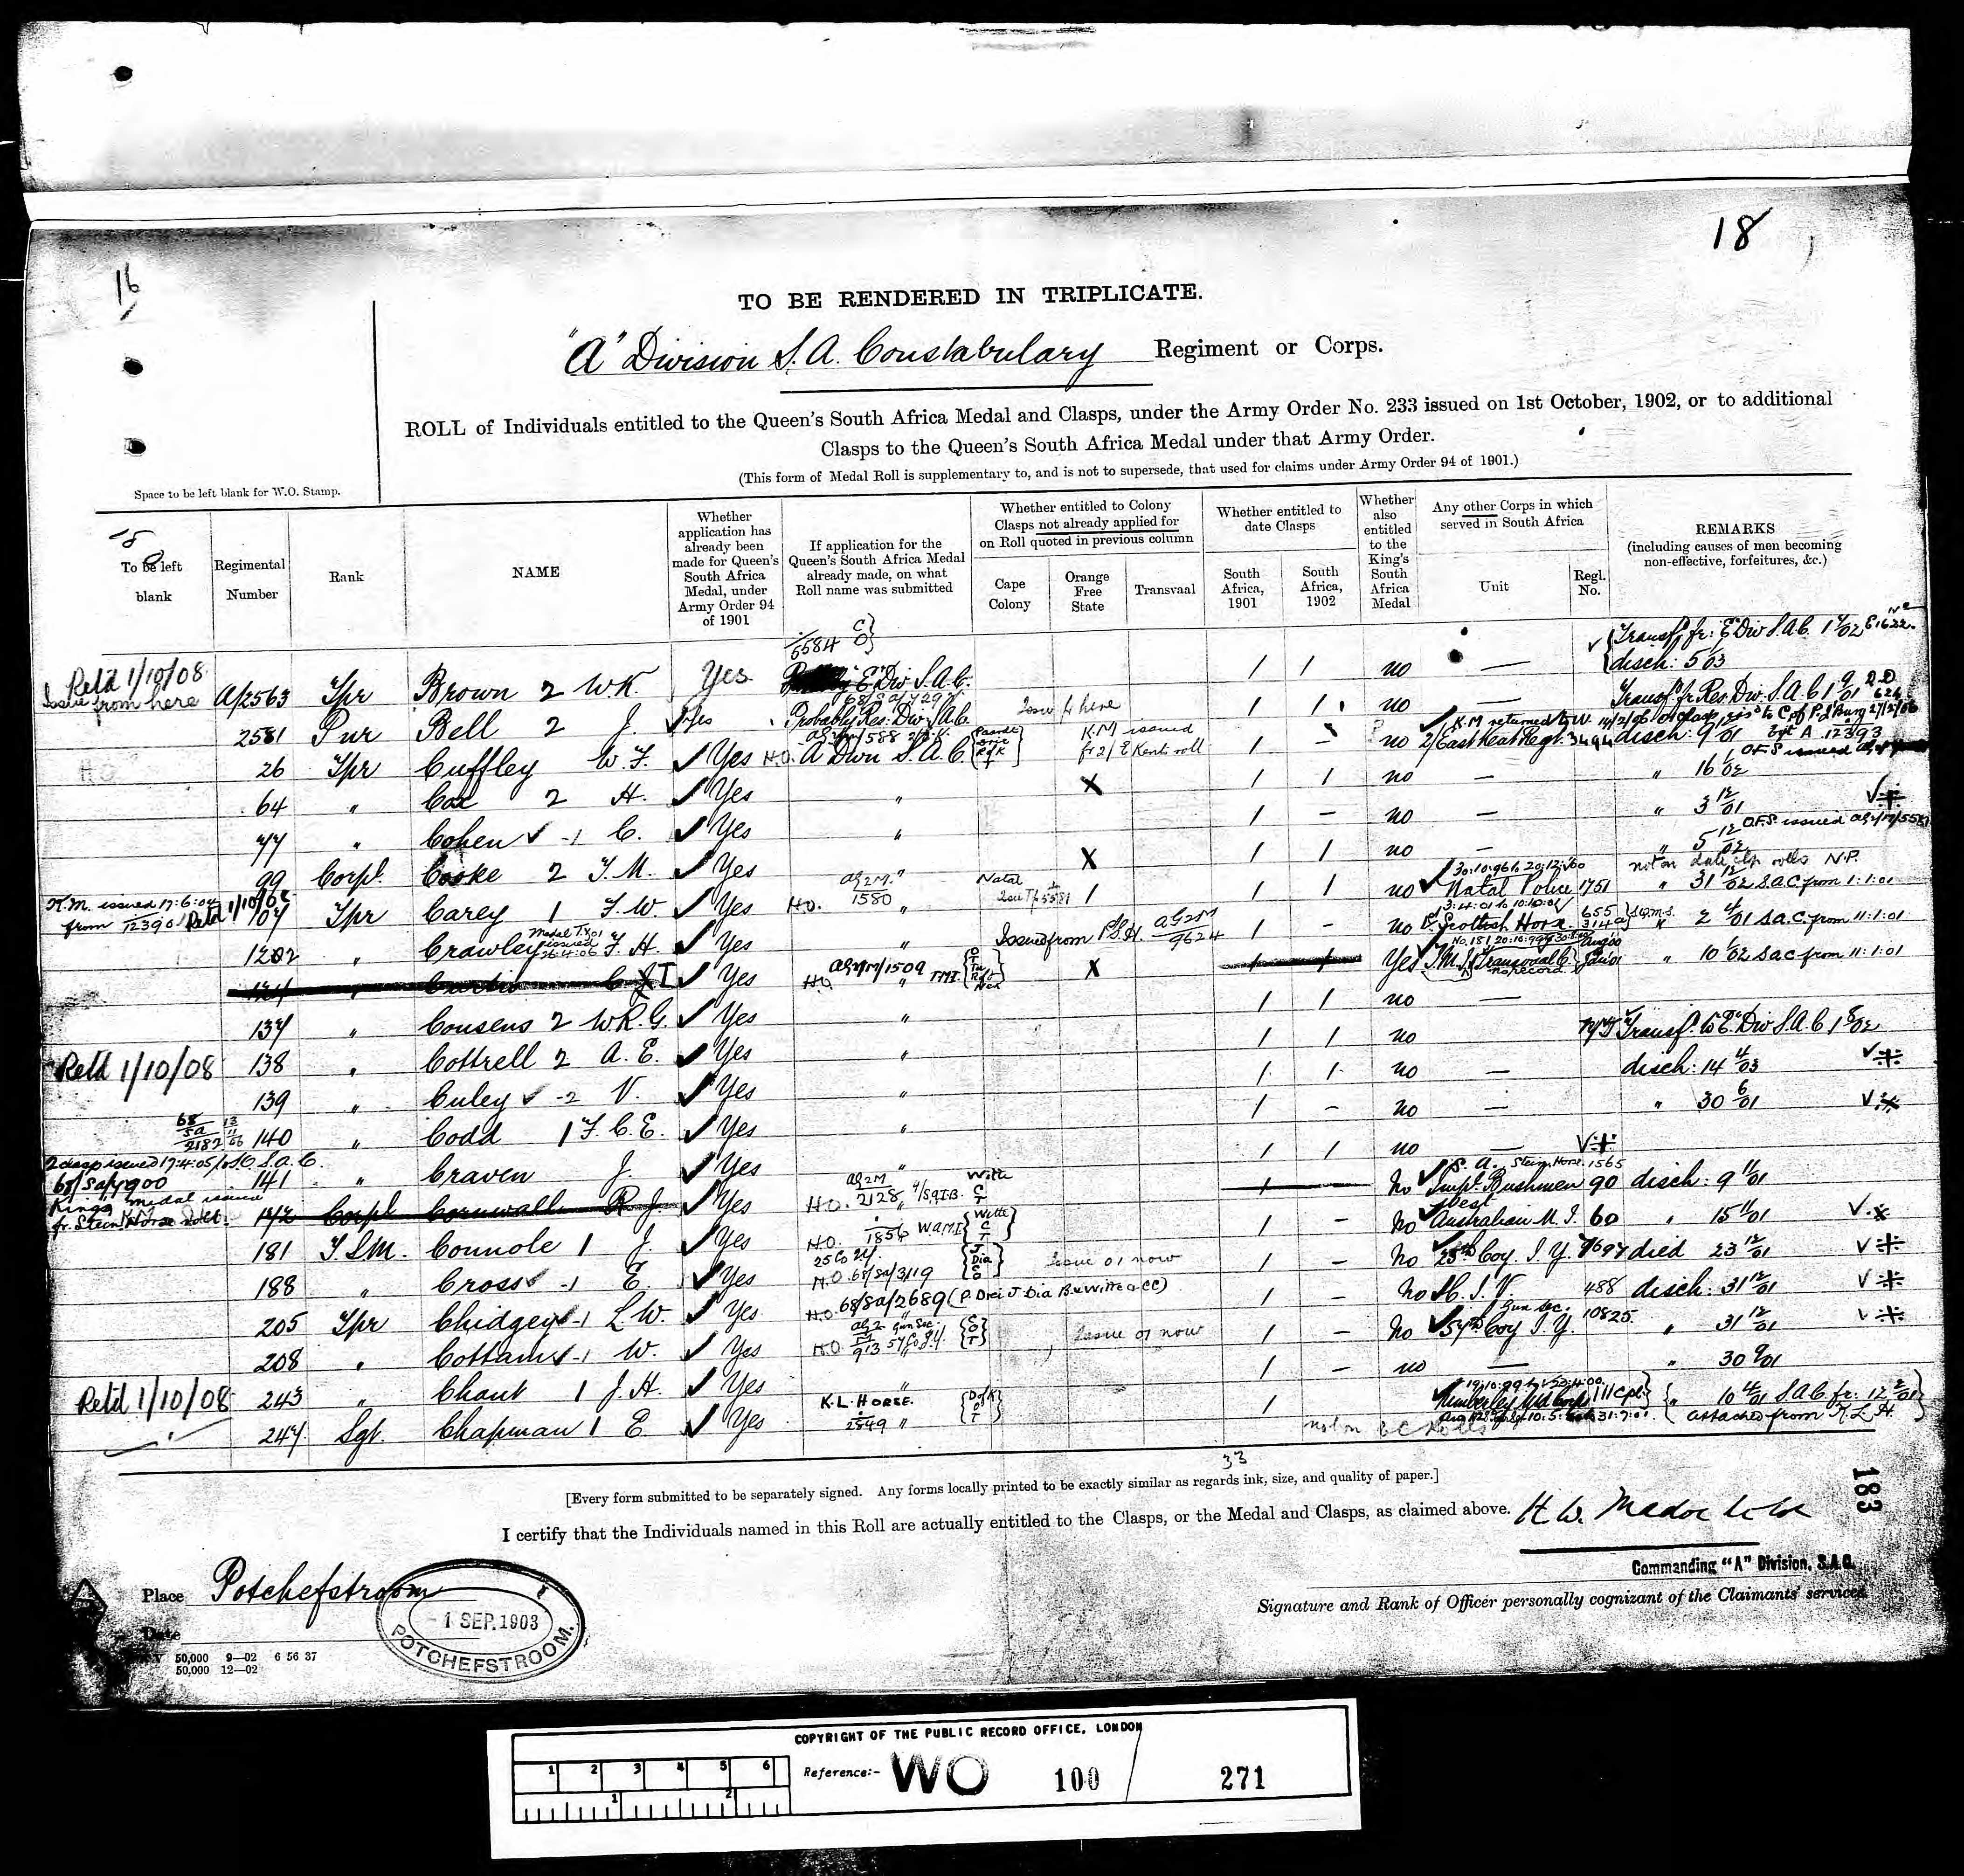 18
16
TO BE RENDERED IN TRIPLICATE.
"A" Division S. A. Constabulary Regiment or Corps.
ROLL of Individuals entitled to the Queen's South Africa Medal and Clasps, under the Army Order No. 233 issued on 1st October, 1902, or to additional
Clasps to the Queen's South Africa Medal under that Army Order.
(This form of Medal Roll is supplementary to, and is not to supersede, that used for claims under Army Order 94 of 1901.)
Space to be left blank for W.O. Stamp.
To be left blank
Regimental Number
Rank
NAME
Whether application has already been made for Queen's South Africa Medal, under Army Order 94 of 1901
If application for the Queen's South Africa Medal already made, on what Roll name was submitted
Whether entitled to Colony Clasps not already applied for on Roll quoted in previous column
Cape Colony
Orange Free State
Transvaal
Whether entitled to date Clasps
South Africa, 1901
South Africa, 1902
Whether also entitled to the King's South Africa Medal
Any other Corps in which served in South Africa
Unit
Regl. No.
REMARKS
(including causes of men becoming non-effective, forfeitures, &c.)
Retd 1/10/08
Issue from here A/2563 Tpr Brown 2 W.K. Yes "E" Div S.A.C. 1 1 no — Transf. fr: E Div S.A.C. disch: 5/03
2581 Pur Bell 2 J. Yes Probably Res. Div. S.A.C. 1 1 no — Transf. fr Res. Div. S.A.C.
26 Tpr Cuffley W. F. Yes A Divn S.A.C. K.M issued fr 2/E Kent roll 1 - no 2/East Kent Regt. 3494 disch: 9/01
64 " Cox 2 H. Yes " X 1 1 no — " 16/02
77 " Cohen 1 C. Yes " 1 - no — " 3 12/01
99 Corpl. Cooke 2 T. M. Yes " X 1 1 no — " 5 12/02
K.M. issued 17:6:04 from 12390 Retd 1/10/08 107 Tpr Carey 1 F. W. Yes H.O. 1580 " Natal 1 1 1 no Natal Police 1751 " 31 12/02 S.A.C from 1:1:01
1202 " Crawley F. H. Yes " Issued from 9624 1 - no Scottish Horse 655 " 2 4/01 S.A.C from 11:1:01
124 " Curtis Yes H.O. AG2/M/1509 " X 1 1 Yes " 10/02 S.A.C from 11:1:01
137 " Cousens 2 W.R.G. Yes " 1 1 no —
Retd 1/10/08 138 " Cottrell 2 A. E. Yes " 1 1 no Transf. to "E" Div S.A.C 1 8/02
139 " Culey 2 V. Yes " 1 1 no — disch: 14 4/03
68/SA/2182 140 " Codd 1 F. C. E. Yes " 1 - no — " 30 6/01
2 clasp issued 17:4:05
68/SA/4900 141 " Craven J. Yes " 1 1 no —
Kings Medal issued fr. Stein. Horse Roll 142 Corpl Cornwall R. J. Yes H.O. 2128 1 - No Impl. Bushmen 90 disch: 9 11/01
181 T.S.M. Connole 1 J. Yes H.O. 1854 W.A.M.I. 1 - No West Australian M. I. 60 " 15 11/01
188 " Cross 1 E. Yes 25 Co I.Y. H.O. 68/SA/3119 Issue 01 now 1 - No 25th Coy. I. Y. 7697 died 23 12/01
205 Tpr Chidgey 1 L. W. Yes H.O. 68/SA/2689 1 - No C. I. V. 488 disch: 31 12/01
208 " Cottam 1 W. Yes H.O. 913 57 Co I.Y. Issue 01 now 1 - No 57th Coy I. Y. 10825 " 31 12/01
Retd 1/10/08 243 " Chant 1 J. H. Yes " 1 - no — " 30 9/01
247 Sgt. Chapman 1 E. Yes K. L. HORSE. 2549 " 1 " 10 4/01 attached from K. L. H.
33
[Every form submitted to be separately signed. Any forms locally printed to be exactly similar as regards ink, size, and quality of paper.]
I certify that the Individuals named in this Roll are actually entitled to the Clasps, or the Medal and Clasps, as claimed above.
183
Commanding "A" Division, S.A.C.
Signature and Rank of Officer personally cognizant of the Claimants' services
Place Potchefstroom
Date
1 SEP. 1903
POTCHEFSTROOM.
50,000 9—02 6 56 37
50,000 12—02
COPYRIGHT OF THE PUBLIC RECORD OFFICE, LONDON
1 2 3 4 5 6
1 2
Reference:- WO 100 / 271